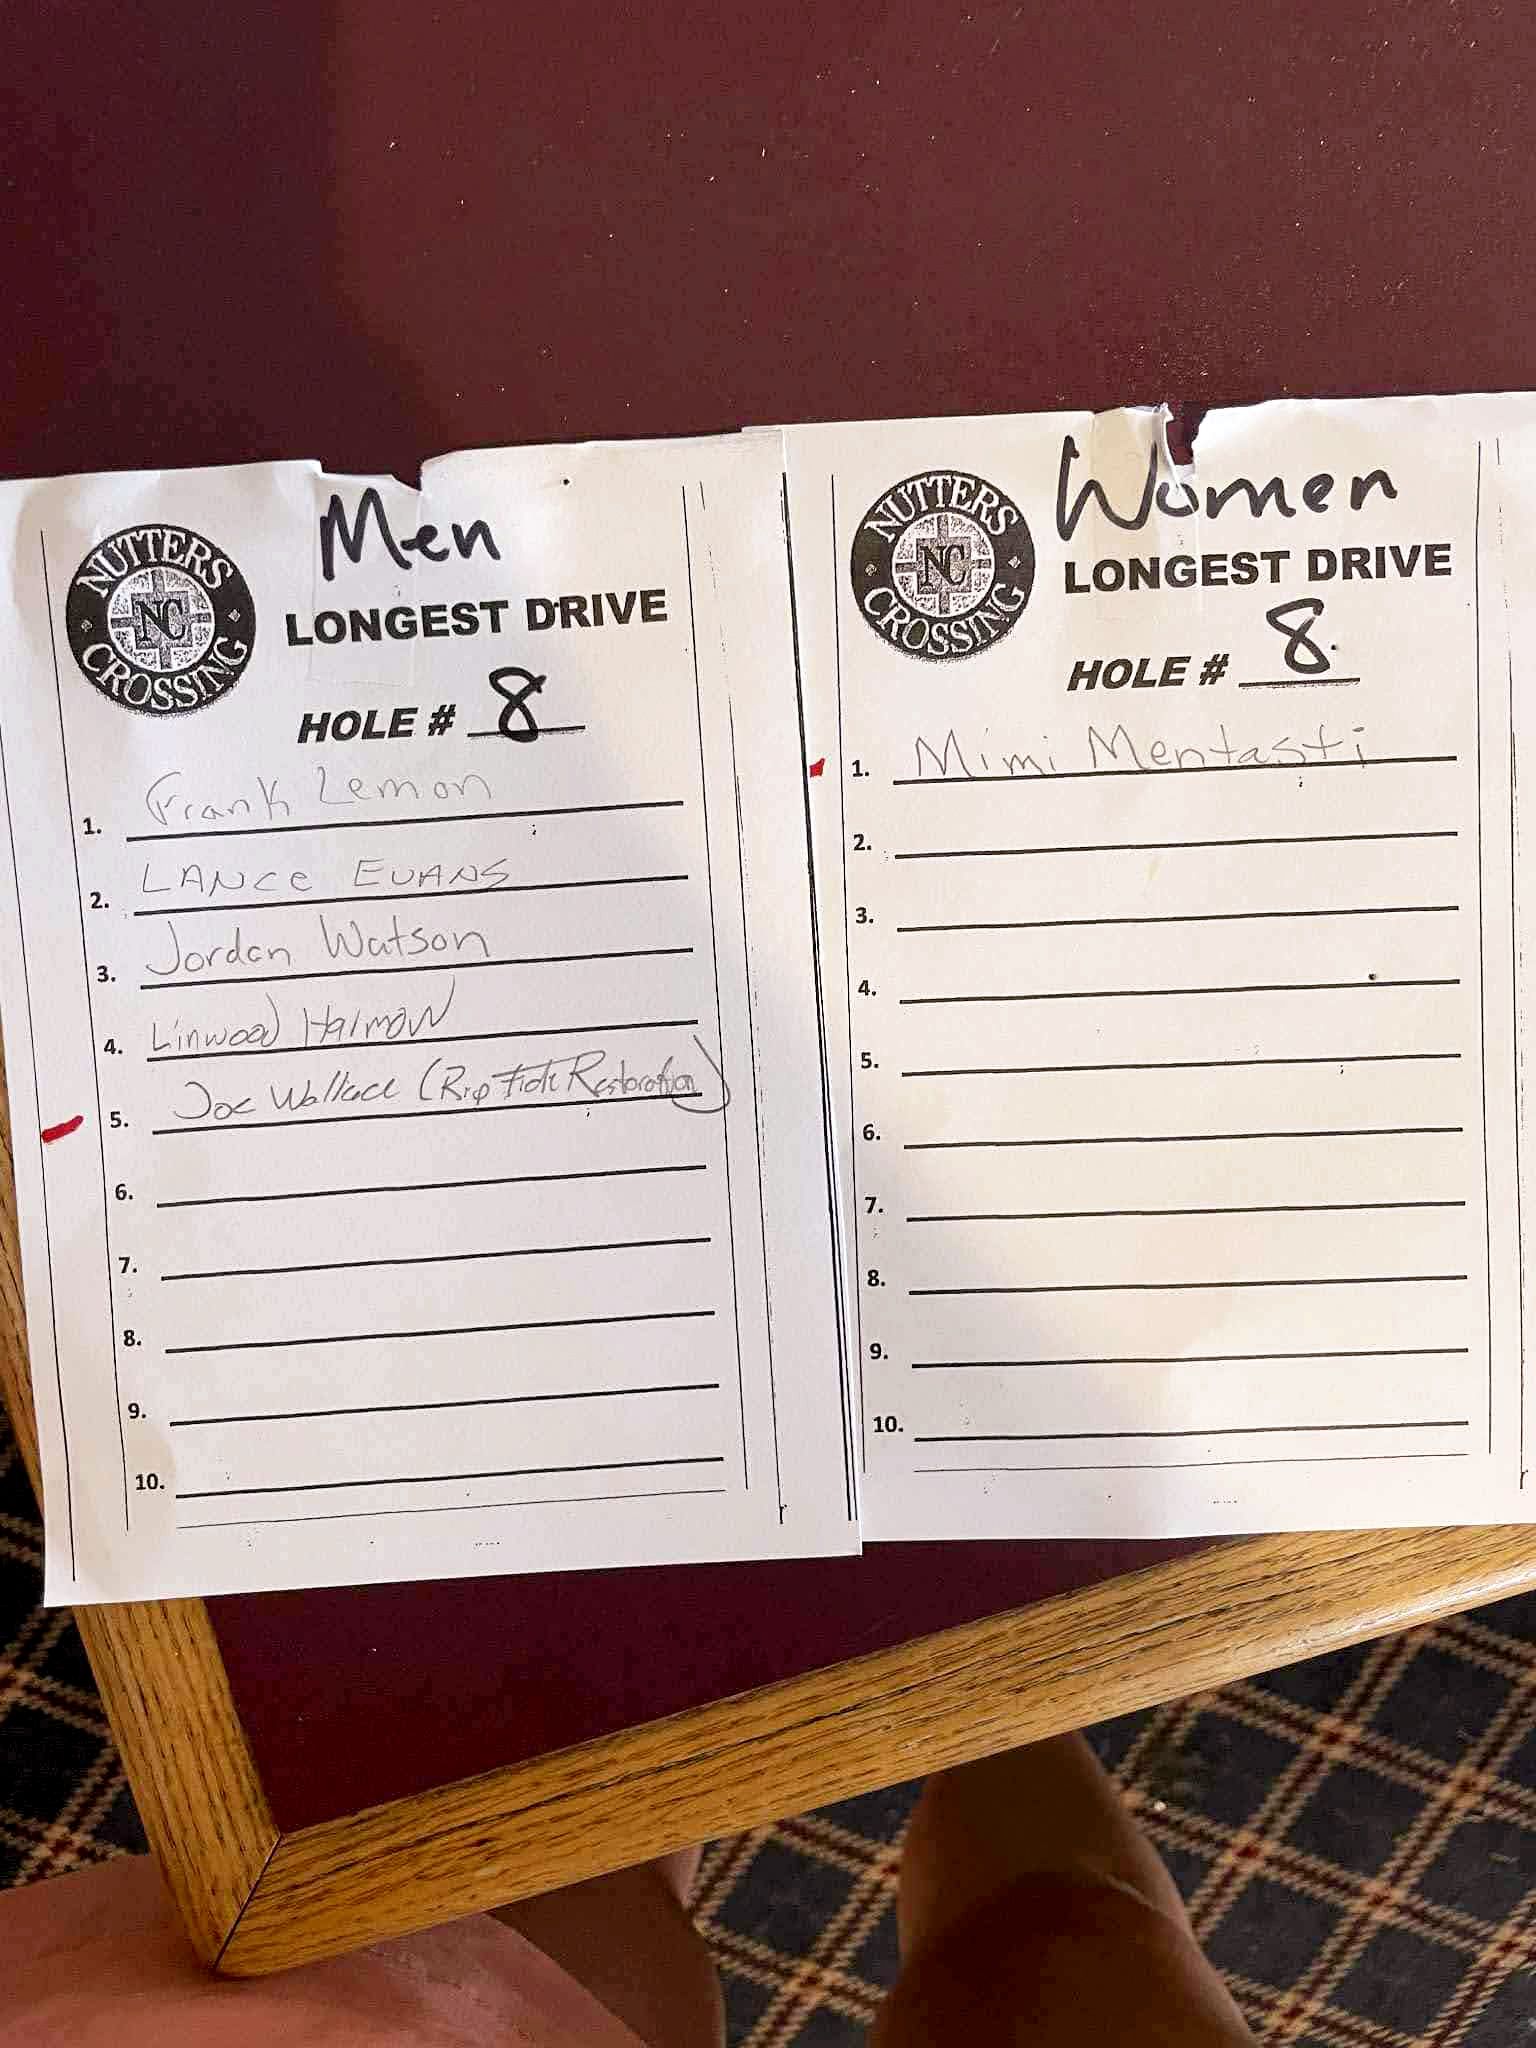 Men
NUTTERS
NC
CROSSING
LONGEST DRIVE
HOLE # 8
1. Frank Lemon
2. LANCE EVANS
3. Jordan Watson
4. Linwood Harmon
5. Joe Wallace (Rip Tide Restoration)
6.
7.
8.
9.
10.
Women
NUTTERS
NC
CROSSING
LONGEST DRIVE
HOLE # 8
1. Mimi Mentasti
2.
3.
4.
5.
6.
7.
8.
9.
10.